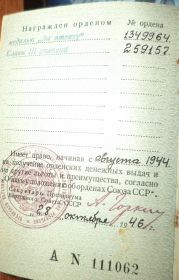 Награжден орденом № ордена
медалью „За отвагу" 1349964.
Славы III степени 259157.
Имеет право, начиная с августа 1944
на получение орденских денежных выдач и
на другие льготы и преимущества, согласно
„Общего положения об орденах Союза ССР".
Секретарь Президиума
Верховного Совета СССР
А. Горкин
„28" октября 1946 г.
А N 111062